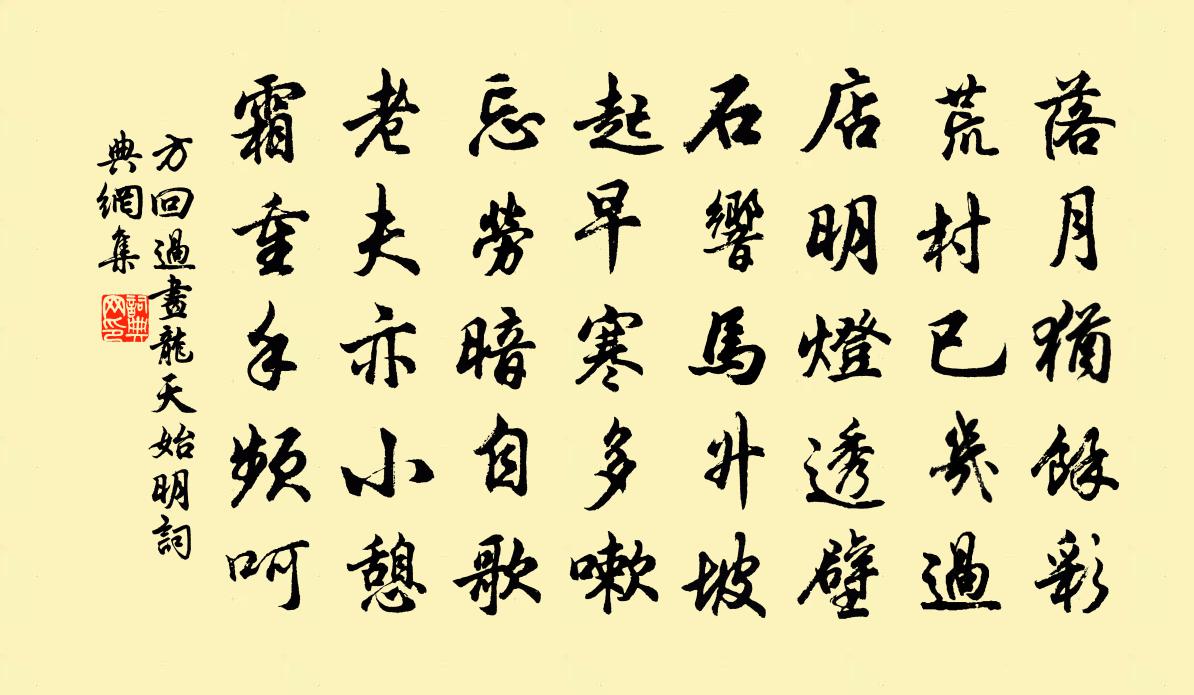 落月猶餘彩
荒村已幾過
店明燈透壁
石響馬升坡
起早寒多嗽
忘勞暗自歌
老夫亦小憩
霜重手頻呵
方回過晝龍天始明詞
典網集
詞典网印